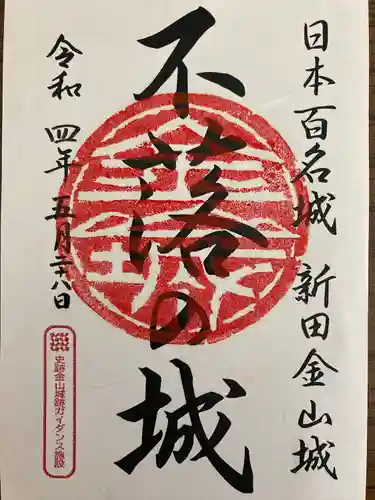 日本百名城 新田金山城
不落の城
令和四年五月二十八日
史跡金山城跡ガイダンス施設